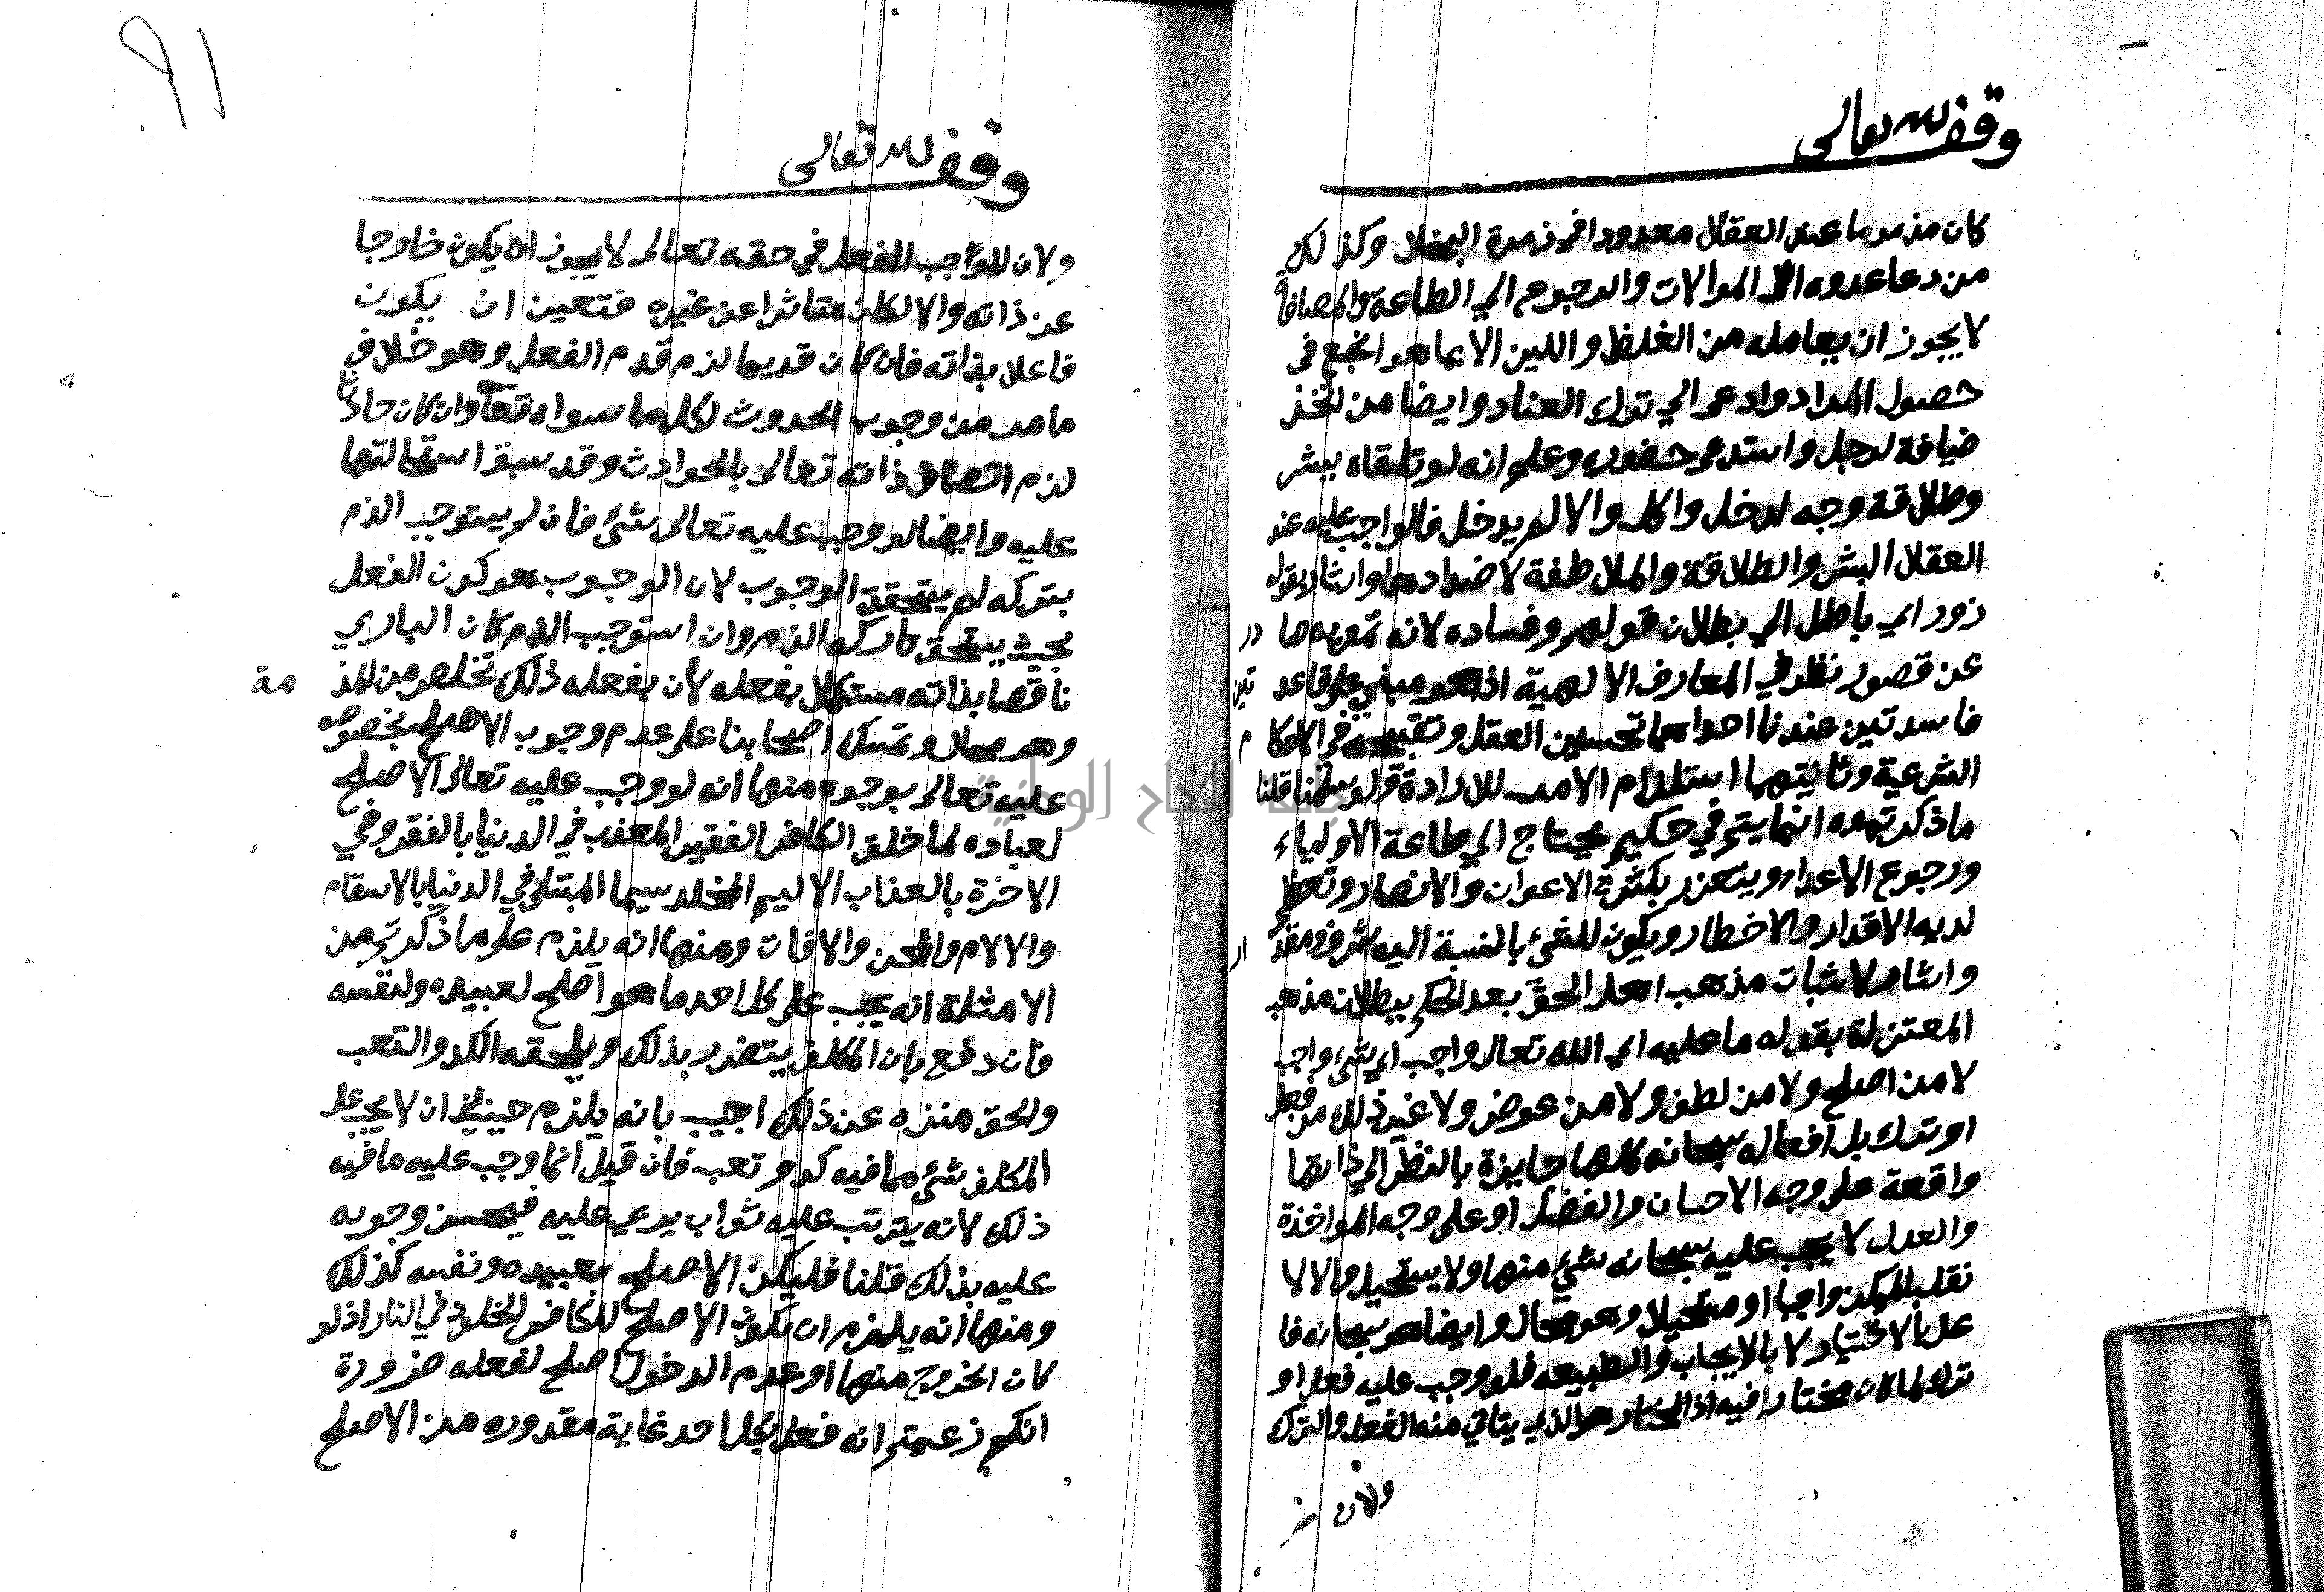 وقف لله تعالى
كان مذموما عند العقلا معدودا في زمرة البخلا وكذلك
من دعا عدوه الى الموالات والرجوع الي الطاعة والمصافاة
لا يجوز ان يعامله من الغلظ واللين الا بما هو انجع في
حصول المراد وادعى الي ترك العناد وايضا من اتخذ
ضيافة لرجل واستدعى حضوره وعلم انه لو تلقاه ببشر
وطلاقة وجه لدخل واكل والا لم يدخل فالواجب عليه عند
العقلا البشر والطلاقة والملاطفة لا ضدادها واشار بقوله
زور اي باطل الي بطلان قولهم وفساده لانه تمويه صا در
عن قصور نظر في المعارف الالهية اذ هو مبني على قاعد تين
فاسدتين عندنا احداهما تحسين العقل وتقبيحه في الاحكا م
الشرعية وثانيتهما استلزام الامر للارادة ولو سلمنا قلنا
ماذكرتموه انما يتم في حكيم يحتاج الي طاعة الاولياء
ورجوع الاعداء ويتعزز بكثرة الاعوان والانصار وتعظم
لديه الاقدار والاخطار ويكون للشئ بالنسبة اليه شرف ومقد ار
واشار لاثبات مذهب اهل الحق بعد الحكم ببطلان مذهب
المعتزلة بقوله ما عليه اي الله تعالى واجب اي شئ واجب
لا من اصلح ولا من لطف ولا من عوض ولا غير ذلك من فعل
او ترك بل افعاله سبحانه كلها جايزة بالنظر الي ذاتها
واقعة على وجه الاحسان والفضل او على وجه المواخذة
والعدل لا يجب عليه سبحانه شئ منها ولا يستحيل والا لا
نقلب الممكن واجبا او مستحيلا وهو محال وايضا هو سبحانه فا
عل بالاختيار لا بالايجاب والطبيعه فلو وجب عليه فعل او
ترك لما كان مختارا فيه اذ المختار هو الذي يتاتي منه الفعل والترك
ولان
وقف لله تعالى
ولان الموجب للفعل في حقه تعالى لا يجوز ان يكون خارجا
عن ذاته والا لكان متاثرا عن غيره فتعين ان يكون
فاعلا بذاته فان كان قديما لزم قدم الفعل وهو خلاف
ما مر من وجوب الحدوث لكل ما سواه تعا وان كان حادثا
لزم اتصاف ذاته تعالى بالحوادث وقد سبق استحالتها
عليه وايضا لو وجب عليه تعالى شئ فان لم يستوجب الذم
بتركه لم يتحقق الوجوب لان الوجوب هو كون الفعل
بحيث يستحق تاركه الذم وان استوجب الذم كان الباري
ناقصا بذاته مستكملا بفعله لأن بفعله ذلك تخلص من المذ مة
وهو محال وتمسك اصحابنا على عدم وجوب الاصلح بخصوصه
عليه تعالى بوجوه منها انه لو وجب عليه تعالى الاصلح
لعباده لما خلق الكافر الفقير المعذب في الدنيا بالفقر وفي
الاخرة بالعذاب الاليم المخلد سيما المبتلى في الدنيا بالاسقام
والالام والمحن والافات ومنها انه يلزم على ما ذكرتم من
الامثلة انه يجب على كل احد ما هو اصلح لعبيده ولنفسه
فان دفع بان المكلف يتضرر بذلك ويلحقه الكد والتعب
والحق منزه عن ذلك اجيب بانه يلزم حينئذ ان لا يجب على
المكلف شئ مما فيه كد وتعب فان قيل انما وجب عليه ما فيه
ذلك لانه يترتب عليه ثواب يربي عليه فيحسن وجوبه
عليه بذلك قلنا فليكن الاصلح بعبيده ونفسه كذلك
ومنها انه يلزم ان تكون الاصلح للكافر الخلود في النار اذ لو
كان الخروج منها او عدم الدخول اصلح لفعله ضرورة
انكم زعمتم انه فعل بكل احد غاية مقدوره من الاصلح